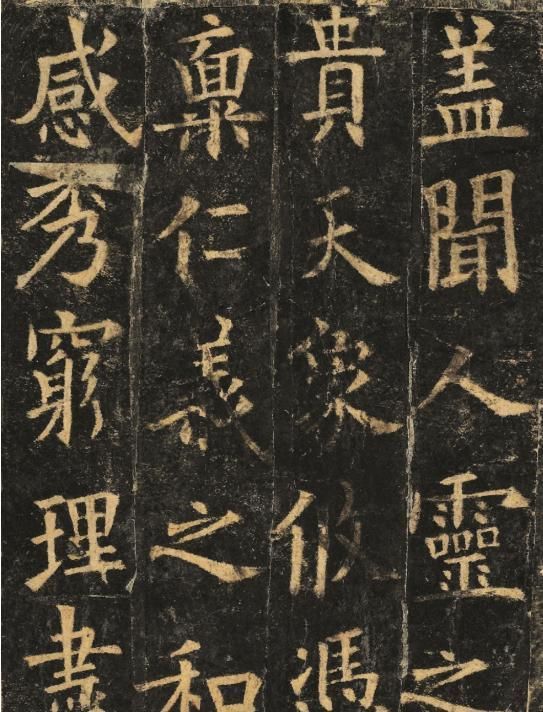 盖聞人靈之
貴天象攸馮
稟仁義之和
感秀窮理盡